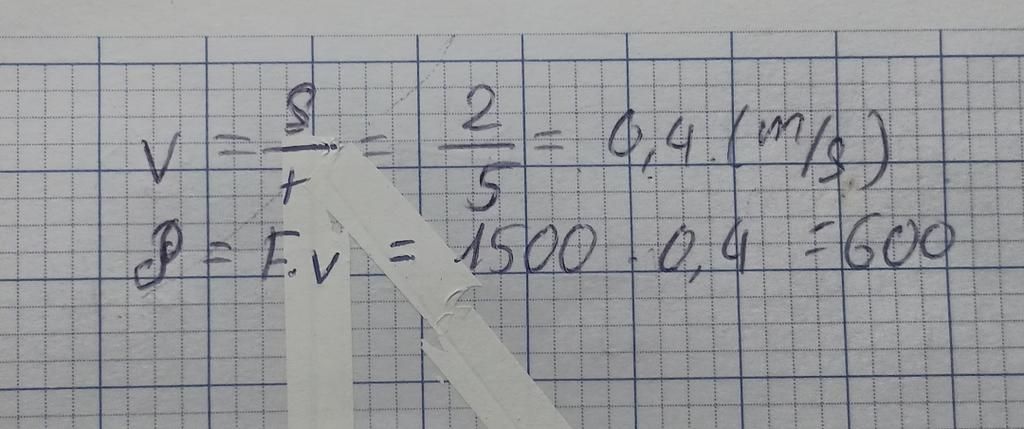 v = s/t = 2/5 = 0,4 (m/s)
P = F.v = 1500 . 0,4 = 600